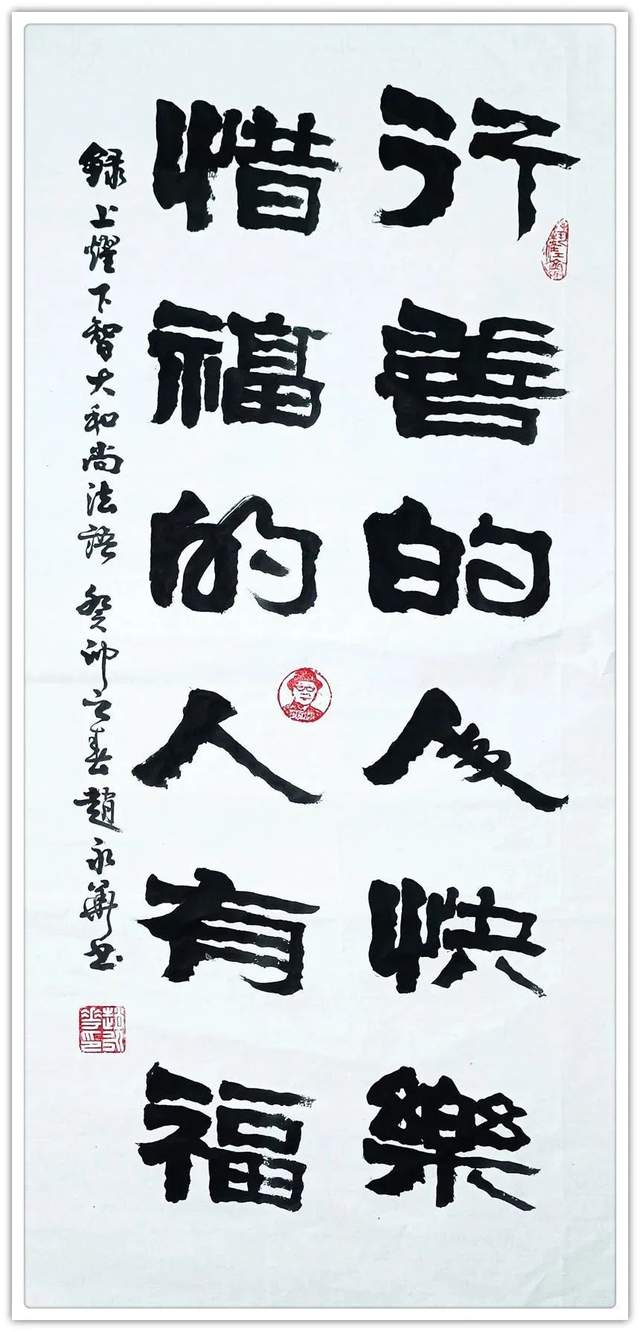 行善的人快樂
惜福的人有福
錄上燿下智大和尚法語 癸卯之春趙永華书